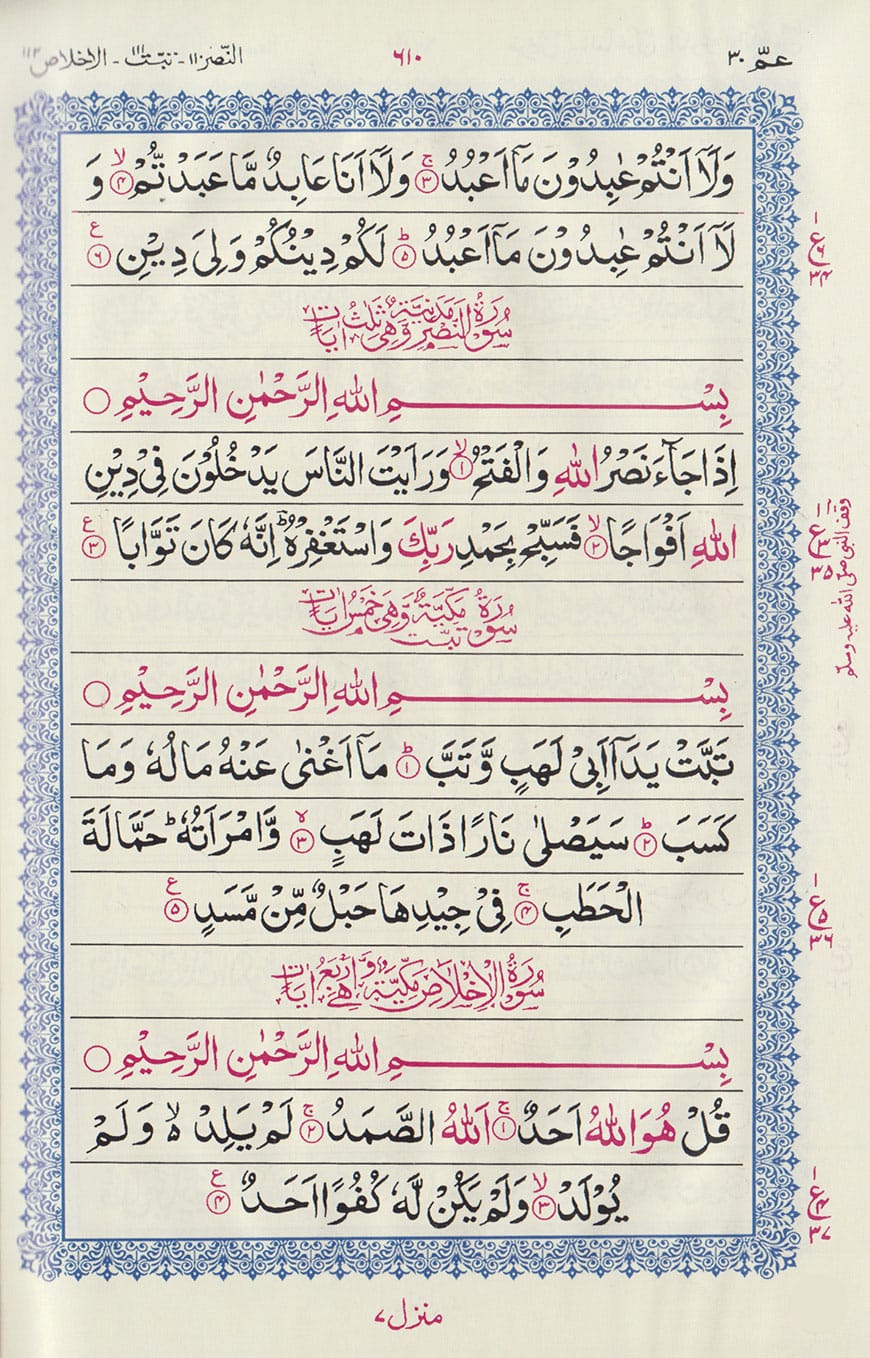 عمّ ٣٠
٦١٠
النّصر ١١٠ - تبّت ١١١ - الاخلاص ١١٢
وَلَاۤ اَنْتُمْ عٰبِدُوْنَ مَاۤ اَعْبُدُ ۚ﴿٣﴾ وَلَاۤ اَنَا عَابِدٌ مَّا عَبَدْتُّمْ ۙ﴿٤﴾ وَ
لَاۤ اَنْتُمْ عٰبِدُوْنَ مَاۤ اَعْبُدُ ؕ﴿٥﴾ لَكُمْ دِيْنُكُمْ وَلِىَ دِيْنِ ﴿٦﴾ ع
سُوْرَةُ النَّصْرِ مَدَنِيَّةٌ وَّهِىَ ثَلٰثُ اٰيَاتٍ
بِسْمِ اللهِ الرَّحْمٰنِ الرَّحِيْمِ ○
اِذَا جَآءَ نَصْرُ اللهِ وَالْفَتْحُ ۙ﴿١﴾ وَرَاَيْتَ النَّاسَ يَدْخُلُوْنَ فِىْ دِيْنِ
اللهِ اَفْوَاجًا ۙ﴿٢﴾ فَسَبِّحْ بِحَمْدِ رَبِّكَ وَاسْتَغْفِرْهُ ؕ اِنَّهٗ كَانَ تَوَّابًا ﴿٣﴾ ع
سُوْرَةُ تَبَّتْ مَكِّيَّةٌ وَّهِىَ خَمْسُ اٰيَاتٍ
بِسْمِ اللهِ الرَّحْمٰنِ الرَّحِيْمِ ○
تَبَّتْ يَدَاۤ اَبِىْ لَهَبٍ وَّتَبَّ ؕ﴿١﴾ مَاۤ اَغْنٰى عَنْهُ مَالُهٗ وَمَا
كَسَبَ ؕ﴿٢﴾ سَيَصْلٰى نَارًا ذَاتَ لَهَبٍ ۵﴿٣﴾ وَّامْرَاَتُهٗ ؕ حَمَّالَةَ
الْحَطَبِ ۚ﴿٤﴾ فِىْ جِيْدِهَا حَبْلٌ مِّنْ مَّسَدٍ ﴿٥﴾ ع
سُوْرَةُ الْاِخْلَاصِ مَكِّيَّةٌ وَّهِىَ اَرْبَعُ اٰيَاتٍ
بِسْمِ اللهِ الرَّحْمٰنِ الرَّحِيْمِ ○
قُلْ هُوَ اللهُ اَحَدٌ ۚ﴿١﴾ اَللهُ الصَّمَدُ ۚ﴿٢﴾ لَمْ يَلِدْ ۵ۙ وَلَمْ
يُوْلَدْ ۙ﴿٣﴾ وَلَمْ يَكُنْ لَّهٗ كُفُوًا اَحَدٌ ﴿٤﴾ ع
ع ٦ ٣٤
ع ٣ ٣٥
وقف النبى صلى الله عليه وسلم
ع ٥ ٣٦
ع ٤ ٣٧
منزل ٧